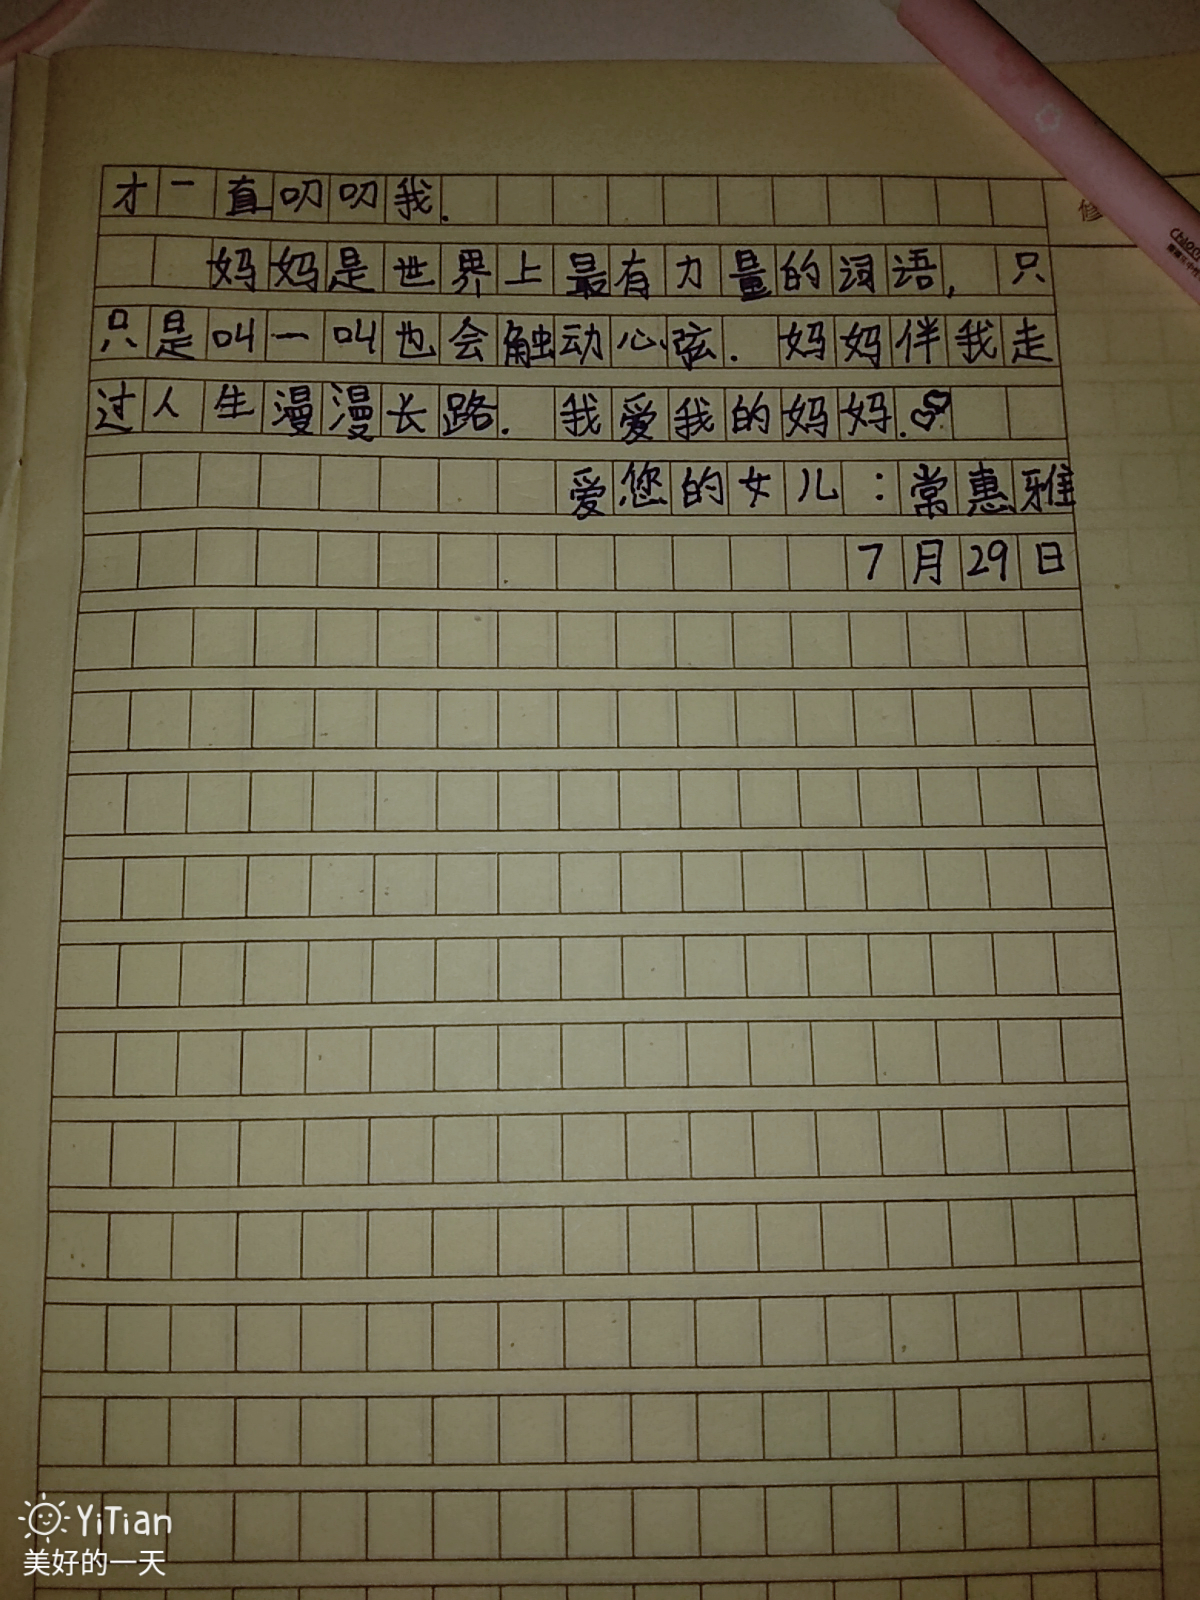 才一直叨叨我.
妈妈是世界上最有力量的词语,只
只是叫一叫也会触动心弦.妈妈伴我走
过人生漫漫长路.我爱我的妈妈.
爱您的女儿:常惠雅
7月29日
修
Chloc
YiTian
美好的一天